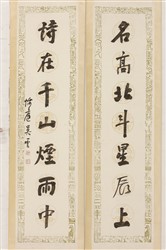 名高北斗星辰上
詩在千山煙雨中